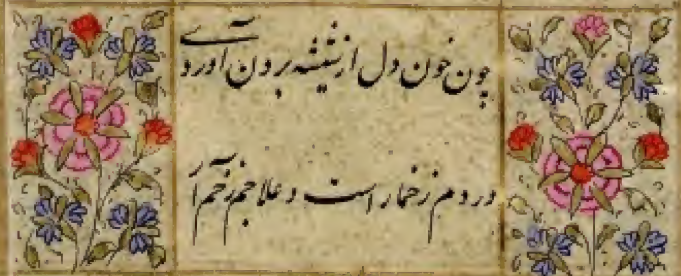 چون خون دل از شیشه برون آوردی
دردم ز خمار است و علاجم ز خم آر